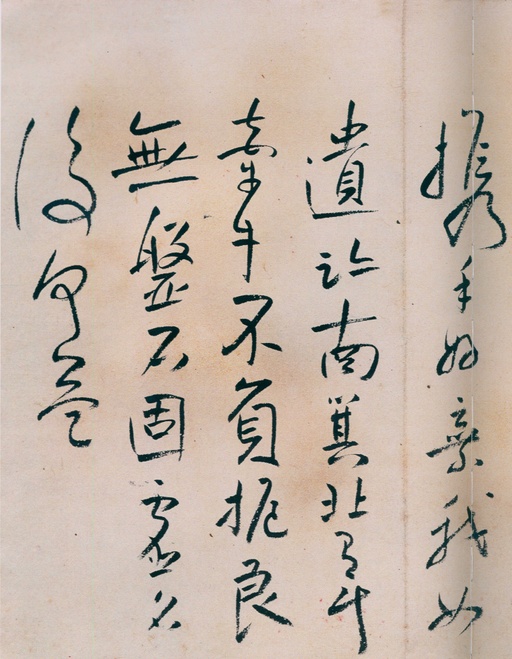 携手好棄我如
遺跡南箕北有斗
牽牛不負軛良
無盤石固虛名
復何益